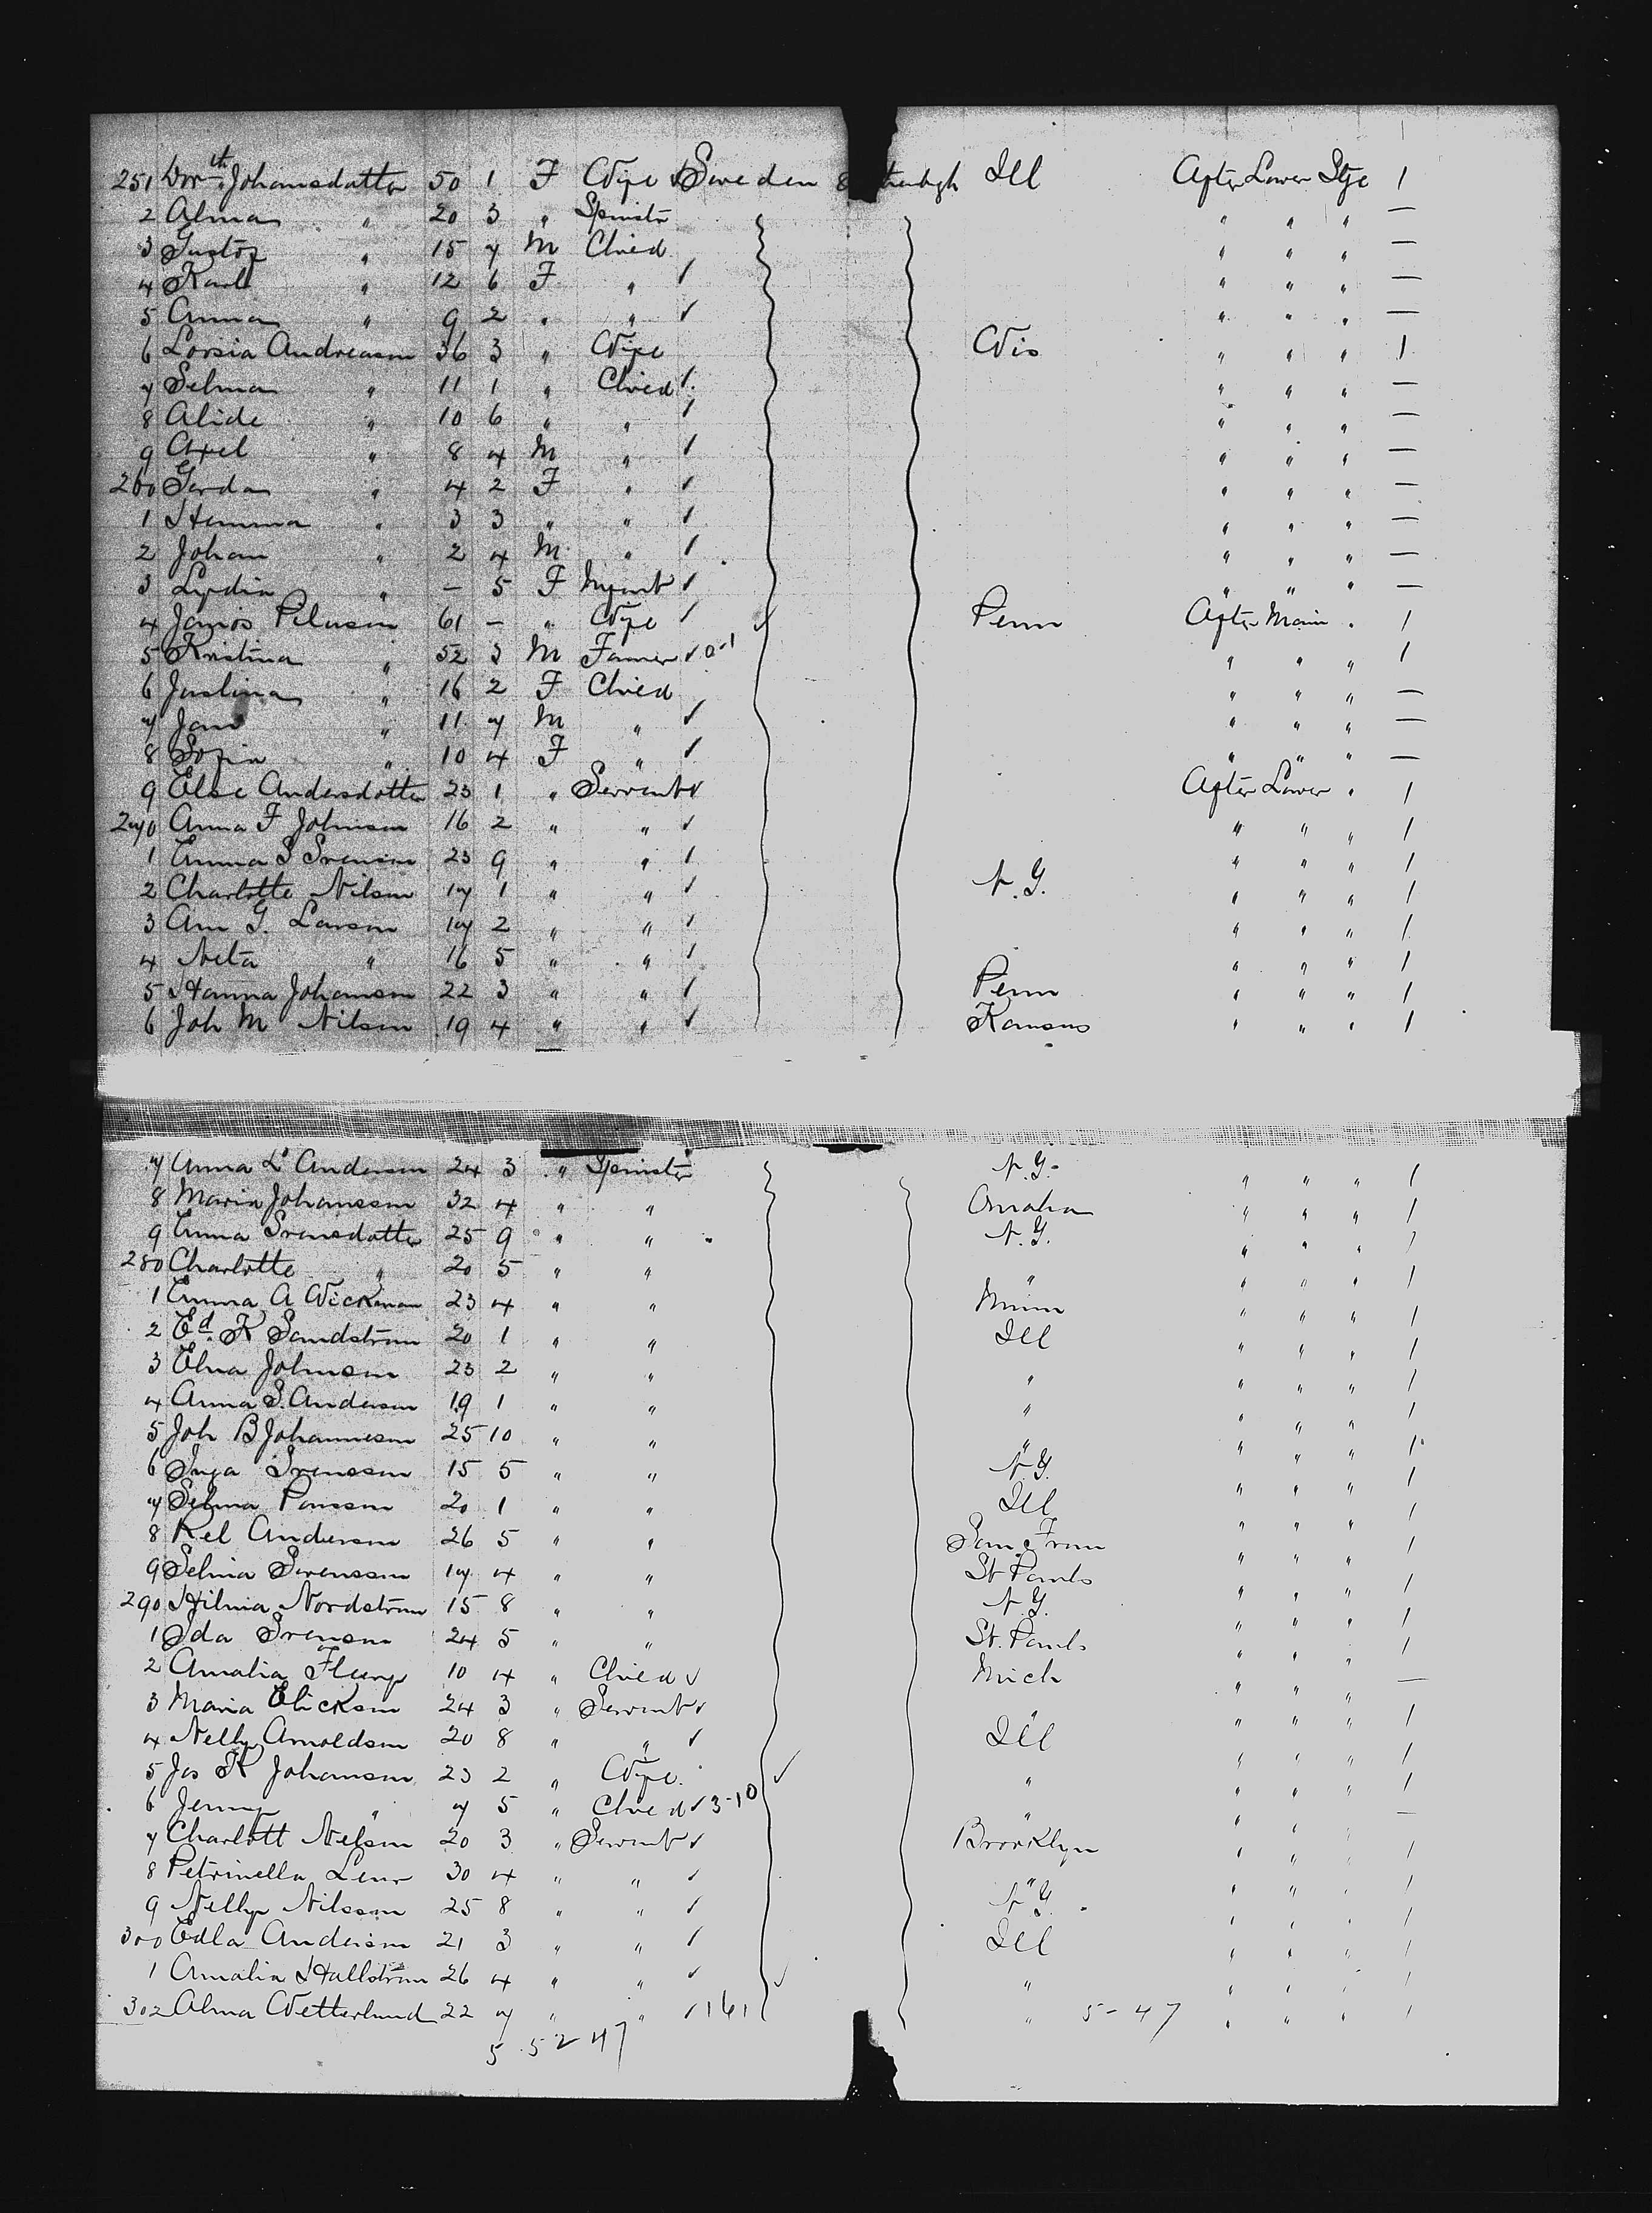 251 Dorth Johansdotter 50 1 F Wife Sweden Ill After Lower Stge 1
2 Alma " 20 3 " Spinster " " " —
3 Gustof " 15 7 M Child " " " —
4 Karl " 12 6 F " ✓ " " " —
5 Anna " 9 2 " " ✓ " " " —
6 Andreasson 36 3 " Wife Wis " " " 1
7 Selma " 11 1 " Child ✓ " " " —
8 Alide " 10 6 " " ✓ " " " —
9 Axel " 8 4 M " ✓ " " " —
260 Gerda " 4 2 F " ✓ " " " —
1 Hemma " 3 3 " " ✓ " " " —
2 Johan " 2 4 M " ✓ " " " —
3 Lydia " — 5 F Infant ✓ " " " —
4 61 — " Wife ✓ ✓ Penn After Main " 1
5 Kristina " 52 3 M Farmer ✓ " " " 1
6 Justina " 16 2 F Child " " " —
7 " 11 7 M " ✓ " " " —
8 Sofia " 10 4 F " ✓ " " " —
9 Else Andersdotter 23 1 " Servant ✓ After Lower " 1
270 Anna F Johnson 16 2 " " ✓ " " " 1
1 Emma S Svenson 23 9 " " ✓ " " " 1
2 Charlotte Nilson 17 1 " " ✓ N.Y. " " " 1
3 Ann G. Larson 17 2 " " ✓ " " " 1
4 Neta " 16 5 " " ✓ " " " 1
5 Hanna Johanson 22 3 " " ✓ Penn " " " 1
6 Joh M Nilson 19 4 " " ✓ Kansas " " " 1
7 Anna L Anderson 24 3 " Spinster N.Y. " " " 1
8 Maria Johansson 32 4 " " Omaha " " " 1
9 Emma Svensdotter 25 9 " " N.Y. " " " 1
280 Charlotte " 20 5 " " " " " " 1
1 Emma A Wickman 23 4 " " Minn " " " 1
2 Ed. K Sandstrom 20 1 " " Ill " " " 1
3 Elna Johnson 23 2 " " " " " " 1
4 Anna S. Anderson 19 1 " " " " " " 1
5 Joh B Johanneson 25 10 " " " " " " 1
6 Inga Svensson 15 5 " " N.Y. " " " 1
7 Selma Ponsson 20 1 " " Ill " " " 1
8 Kel Anderson 26 5 " " San Fran " " " 1
9 Selma Svensson 17 4 " " St Pauls " " " 1
290 Hilma Nordstrom 15 8 " " N.Y. " " " 1
1 Ida Svenson 24 5 " " St. Pauls " " " 1
2 Amalia 10 4 " Child ✓ Mich " " " —
3 Maria Erickson 24 3 " Servant ✓ " " " " 1
4 Nelly Arnoldson 20 8 " " ✓ Ill " " " 1
5 Jos K Johanson 23 2 " Wife ✓ " " " " 1
6 Jenny " 7 5 " Child ✓ 3-10 " " " " —
7 Charlott Nelson 20 3 " Servant ✓ Brooklyn " " " 1
8 Petrinella 30 4 " " ✓ " " " " 1
9 Nelly Nilsson 25 8 " " ✓ N.Y. " " " 1
300 Edla Anderson 21 3 " " ✓ Ill " " " 1
1 Amalia Hallstrom 26 4 " " ✓ ✓ " " " " 1
302 Alma Wetterlund 22 7 " " ✓ 161 " 5-47 " " " 1
5 52 47